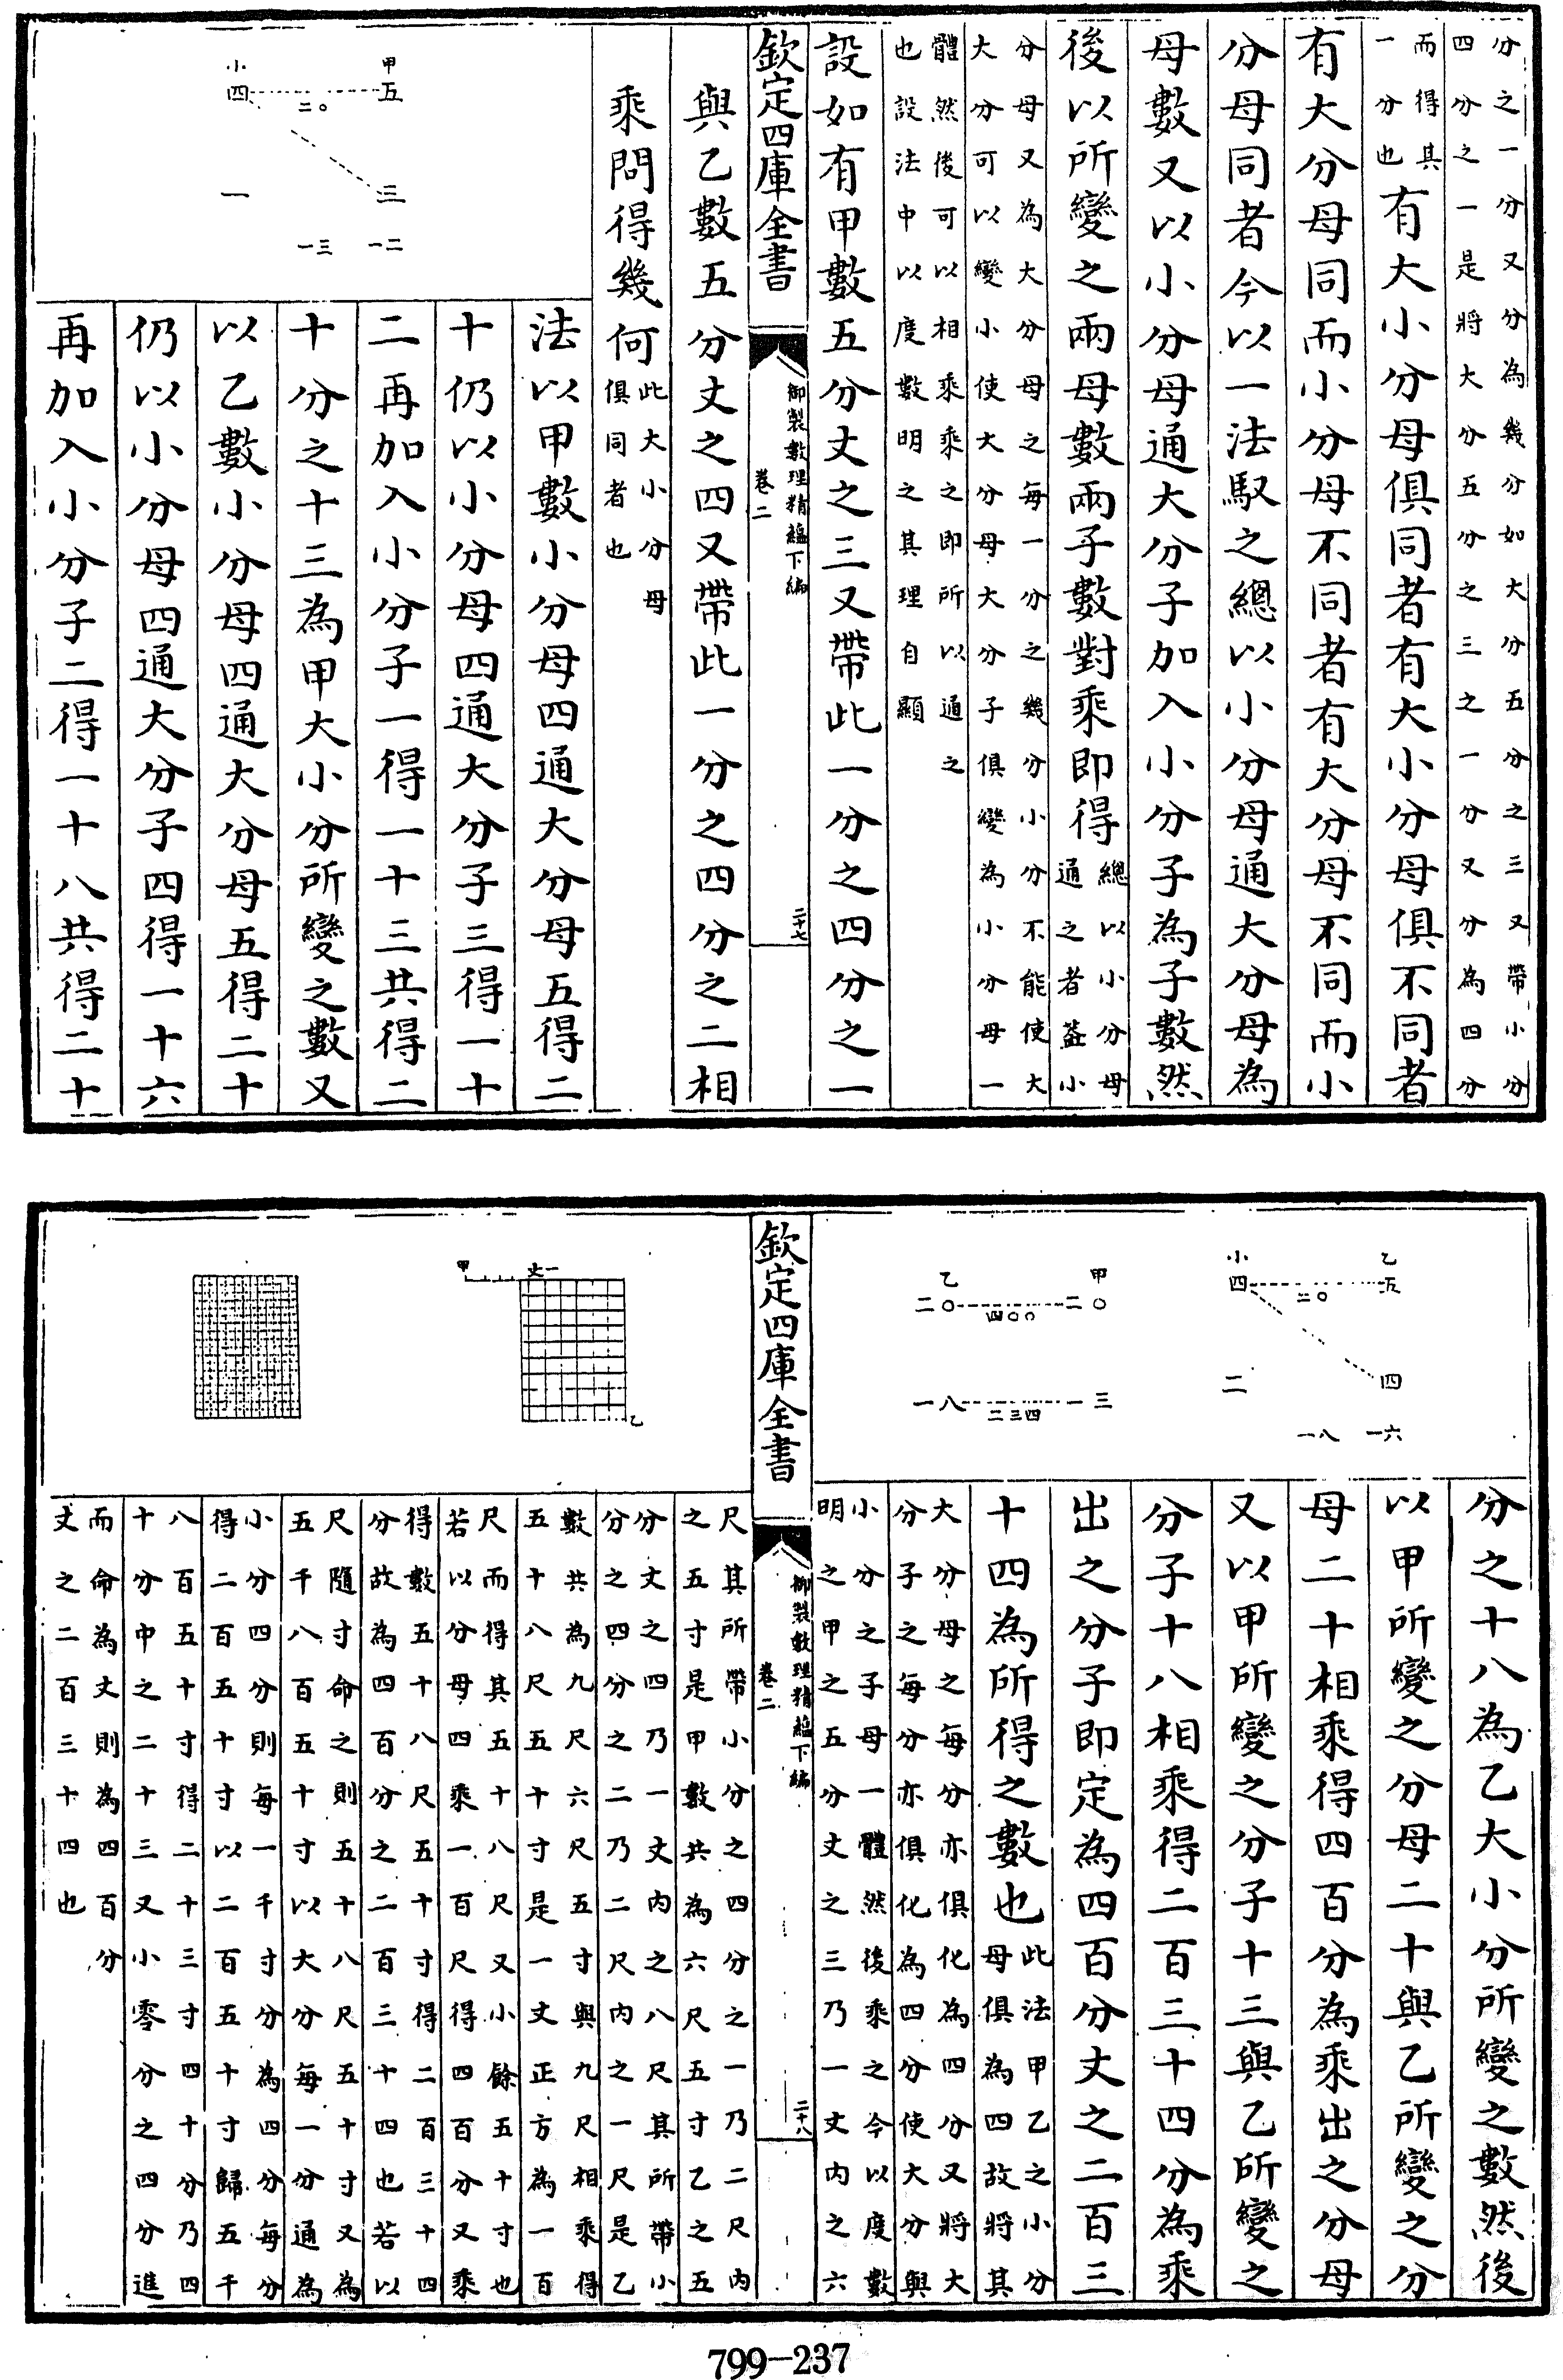 分之一分又分為幾分如大分五分之三又帶小分
四分之一是將大分五分之三之一分又分為四分
而得其
一分也
有大小分母俱同者有大小分母俱不同者
有大分母同而小分母不同者有大分母不同而小
分母同者今以一法馭之總以小分母通大分母為
母數又以小分母通大分子加入小分子為子數然
後以所變之兩母數兩子數對乘即得
總以小分母
通之者蓋小
分母又為大分母之每一分之幾分小分不能使大
大分可以變小使大分母大分子俱變為小分母一
體然後可以相乘乘之即所以通之
也設法中以度數明之其理自顯
設如有甲數五分丈之三又帶此一分之四分之一
欽定四庫全書
御製數理精蘊下編
卷二
二十七
與乙數五分丈之四又帶此一分之四分之二相
乘問得幾何
此大小分母
俱同者也
甲
五
二〇
小
四
三
一
一二
一三
法以甲數小分母四通大分母五得二
十仍以小分母四通大分子三得一十
二再加入小分子一得一十三共得二
十分之十三為甲大小分所變之數又
以乙數小分母四通大分母五得二十
仍以小分母四通大分子四得一十六
再加入小分子二得一十八共得二十
乙
五
二〇
小
四
四
二
一六
一八
甲
二〇
四〇〇
乙
二〇
一三
二三四
一八
分之十八為乙大小分所變之數然後
以甲所變之分母二十與乙所變之分
母二十相乘得四百分為乘出之分母
又以甲所變之分子十三與乙所變之
分子十八相乘得二百三十四分為乘
出之分子即定為四百分丈之二百三
十四為所得之數也
此法甲乙之小分
母俱為四故將其
大分母之每分亦俱化為四分又將大
分子之每分亦俱化為四分使大分與
小分之子母一體然後乘之今以度數
明之甲之五分丈之三乃一丈內之六
欽定四庫全書
御製數理精蘊下編
卷二
二十八
一丈
甲
乙
尺其所帶小分之四分之一乃二尺內
之五寸是甲數共為六尺五寸乙之五
分丈之四乃一丈內之八尺其所帶小
分之四分之二乃二尺內之一尺是乙
數共為九尺六尺五寸與九尺相乘得
五十八尺五十寸是一丈正方為一百
尺而得其五十八尺又小餘五十寸也
若以分母四乘一百尺得四百分又乘
得數五十八尺五十寸得二百三十四
分故為四百分之二百三十四也若以
尺隨寸命之則五十八尺五十寸又為
五千八百五十寸以大分每一分通為
小分四分則每一千寸分為四分每分
得二百五十寸以二百五十寸歸五千
八百五十寸得二十三寸四十分乃四
十分中之二十三又小零分之四分進
而命為丈則為四百分
丈之二百三十四也
799-237